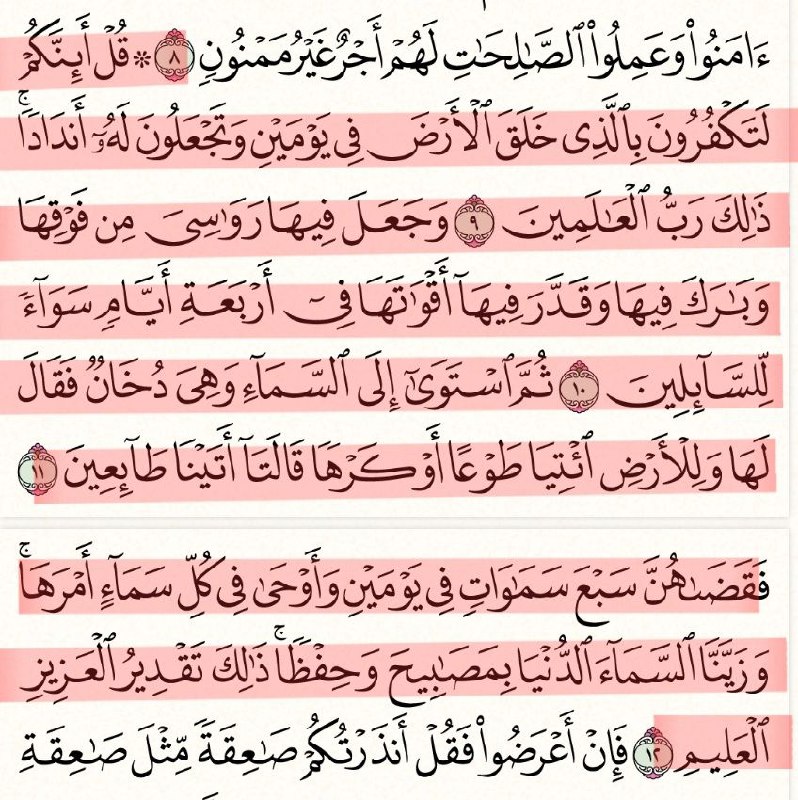 ءَامَنُوا۟ وَعَمِلُوا۟ ٱلصَّـٰلِحَـٰتِ لَهُمْ أَجْرٌ غَيْرُ مَمْنُونٍ ٨ ۞ قُلْ أَئِنَّكُمْ
لَتَكْفُرُونَ بِٱلَّذِى خَلَقَ ٱلْأَرْضَ فِى يَوْمَيْنِ وَتَجْعَلُونَ لَهُۥٓ أَندَادًا ۚ
ذَٰلِكَ رَبُّ ٱلْعَـٰلَمِينَ ٩ وَجَعَلَ فِيهَا رَوَٰسِىَ مِن فَوْقِهَا
وَبَـٰرَكَ فِيهَا وَقَدَّرَ فِيهَآ أَقْوَٰتَهَا فِىٓ أَرْبَعَةِ أَيَّامٍ سَوَآءً
لِّلسَّآئِلِينَ ١٠ ثُمَّ ٱسْتَوَىٰٓ إِلَى ٱلسَّمَآءِ وَهِىَ دُخَانٌ فَقَالَ
لَهَا وَلِلْأَرْضِ ٱئْتِيَا طَوْعًا أَوْ كَرْهًا قَالَتَآ أَتَيْنَا طَآئِعِينَ ١١
فَقَضَىٰهُنَّ سَبْعَ سَمَـٰوَاتٍ فِى يَوْمَيْنِ وَأَوْحَىٰ فِى كُلِّ سَمَآءٍ أَمْرَهَا ۚ
وَزَيَّنَّا ٱلسَّمَآءَ ٱلدُّنْيَا بِمَصَـٰبِيحَ وَحِفْظًا ۚ ذَٰلِكَ تَقْدِيرُ ٱلْعَزِيزِ
ٱلْعَلِيمِ ١٢ فَإِنْ أَعْرَضُوا۟ فَقُلْ أَنذَرْتُكُمْ صَـٰعِقَةً مِّثْلَ صَـٰعِقَةِ